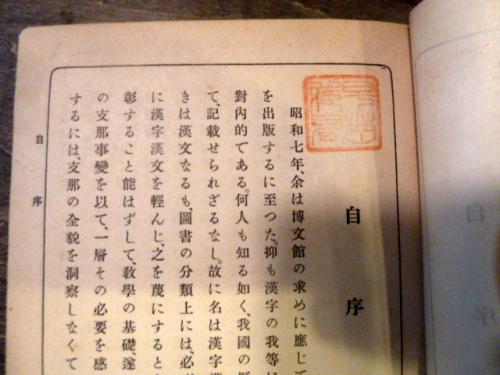 自序
昭和七年、余は博文館の求めに應じて
を出版するに至つた。抑も漢字の我等に
對內的である。何人も知る如く、我國の
て、記載せられざるなし。故に名は漢字漢
きは漢文なるも、圖書の分類上には、必
に漢字漢文を輕んじ、之を蔑にすると
彰すること能はずして、敎學の基礎、遂
の支那事變を以て、一層その必要を感
するには、支那の全貌を洞察しなくて
自序